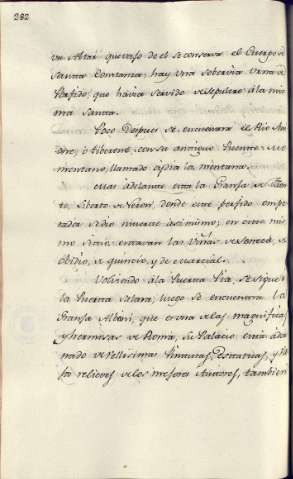 282
un Altar que vajo de el se conserva el Cuerpo de
Santa Constanza; hay una sobervia Urna de
Porfido, que havia servido de sepulcro à la mis
ma Santa.
Poco despues se encuentra el Rio
ò Tiberone, con su antiguo Puente
mentano, llamado oy dia la mentana.
mas adelante esta la Granja de
te, Liberto de Neron, donde este perfido empe
rador se dio muerte asi mismo; en este mis
mo sitio estavan las Viñas de Seneca, de
Obidio, de quincio, y de marcial.
Volviendo à la Puerta Pia, se sigue
la Puerta Salara, luego se encuentra la
Granja Albani, que es una de las magnificas,
y hermosas de Roma, su Palacio esta ador
nado de Vellisimas Pinturas, Estatuas, y Va
jo relieves de los mejores Autores, tambien